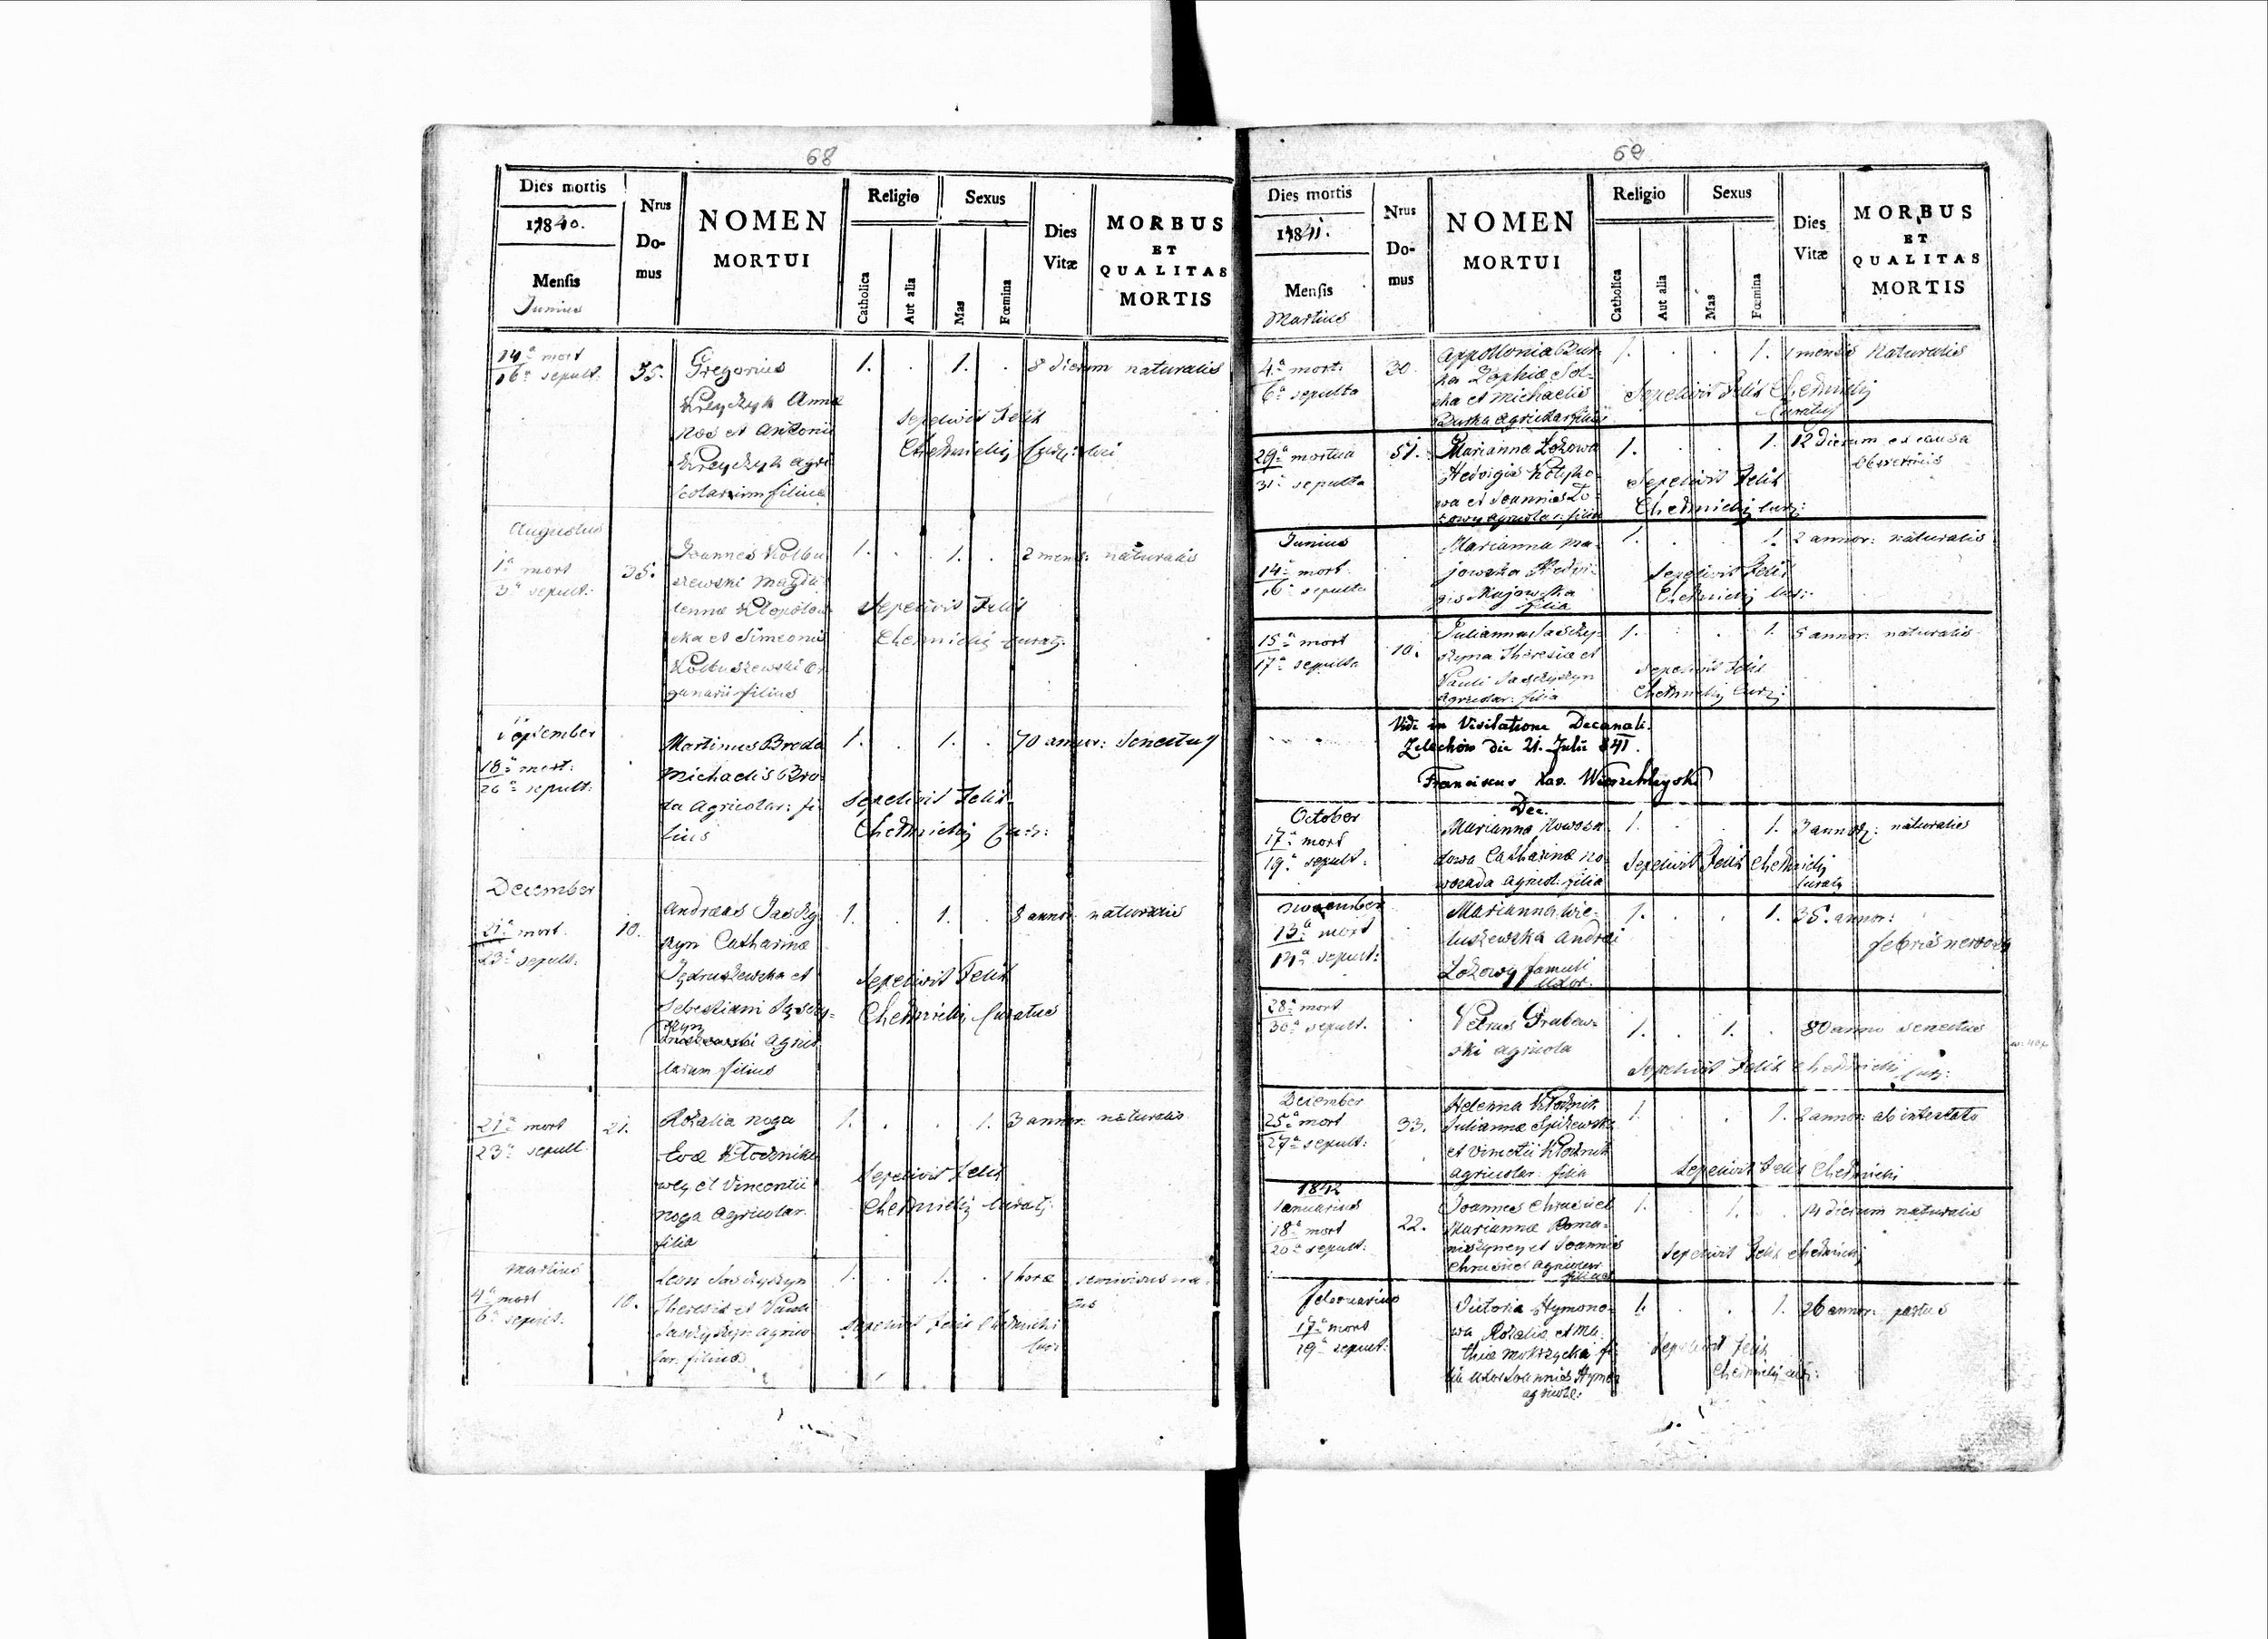 68
Dies mortis
1840.
Mensis
Junius
Nrus
Do-
mus
NOMEN
MORTUI
Religio
Catholica
Aut alia
Sexus
Mas
Fœmina
Dies
Vitæ
MORBUS
ET
QUALITAS
MORTIS
14ª mort
16ª sepult.
35.
Gregorius
Annæ
et Antonii
Agri
colarum filius
1. . 1. . 8 dierum naturalis
sepelivit Felix
Chednickij
Augustus
1ª mort
3ª sepult.
35.
Joannes Kolbu
szewski Magda
lennæ
et Simeonis
Kolbuszewski Or
ganarii filius
1. . 1. . 2 mens: naturalis
Sepelivit Felix
Chednickij Curatg.
September
18ª mort:
20ª sepult:
Martinus Broda
Michaelis Bro
da Agricolar: fi
lius
1. . 1. . 70 annor: Senectus
Sepelivit Felix
Chednickij
December
21ª mort.
23ª sepult.
10.
Andreas
Catharinæ
et
Sebestiani
Agrico
larum filius
1. . 1. . 8 annor: naturalis
Sepelivit Felix
Chednickij Curatus
21ª mort
23ª sepult
21.
Rozalia Noga
Evæ Kłodniko
wey et Vincentii
Noga Agricolar.
filia
1. . . 1. 3 annor: naturalis
Sepelivit Felix
Chednickij Curatg.
Martius
4ª mort
6ª sepult.
10.
Leon
Theresiæ et Pauli
Agrico
lar. filius
1. . 1. . 1 horæ semivivus na
tus
sepelivit Felix Chednicki
Cur:
69
Dies mortis
1841.
Mensis
Martius
Nrus
Do-
mus
NOMEN
MORTUI
Religio
Catholica
Aut alia
Sexus
Mas
Fœmina
Dies
Vitæ
MORBUS
ET
QUALITAS
MORTIS
4ª mort:
6ª sepulta
30.
Appollonia Bur-
ka Zophiæ Sol-
ska et Michaelis
Burka Agricolar filia
1. . . 1. 1 mensis Naturalis
Sepelivit Felix Chednickij
Curatus
29ª mortua
31ª sepulta
51.
Marianna Łozowa
Hedvigis
et Joannis Ło-
zowy Agricolar: filia
1. . . 1. 12 dierum ex causa
Sepelivit Felix
Chednickij Curg:
Junius
14ª mort.
16ª sepulta
Marianna Ma-
jowska Hedvi-
gis Majowska
filia
1. . . 1. 2 annor: naturalis
Sepelivit Felix
Chednickij Cur:
15ª mort
17ª sepulta
10.
Julianna
Theresiæ et
Pauli
Agricolar: filia
1. . . 1. 5 annor: naturalis
Sepelivit Felix
Chednickij Curg:
Vidi in Visitatione Decanali
Zelechów die 21. Julii 841.
Franciscus Xav.
Dec.
October
17ª mort
19ª sepult:
Marianna Nowosa
dowa Catharinæ No
wosada Agricol: filia
1. . . 1. 3 annor: naturalis
Sepelivit Felix Chednickij
Curatg
November
13ª mort
14ª sepult:
Marianna Wie-
luszewska Andrei
Łozowy famuli
uxor.
1. . . 1. 35. annor:
febris nervosa
28ª mort
30ª sepult.
Petrus Grabow-
ski agricola
1. . 1. . 80 anno senectus
Sepelivit Felix Chednickij
Curg:
December
25ª mort
27ª sepult:
33.
Helenna Kłodnik
Juliannæ
et Vincetii Kłodnik
Agricolar. filia
1. . . 1. 2 annor: ab intestato
Sepelivit Felix Chednicki
1842
Januarius
18ª mort
20ª sepult:
22.
Joannes Chrusciel
Mariannæ Roma-
et Joannis
Chrusciel Agricolar
filius
1. . 1. . 14 dierum naturalis
Sepelivit Felix Chednickij
Februarius
17ª mort
19ª sepult:
Victoria Hymono-
wa Rozaliæ et Ma-
thiæ Mokrzycka fi-
lia uxor Joannis Hymon
agricolæ:
1. . . 1. 26 annor: partus
Sepelivit Felix
Chednickij cur: